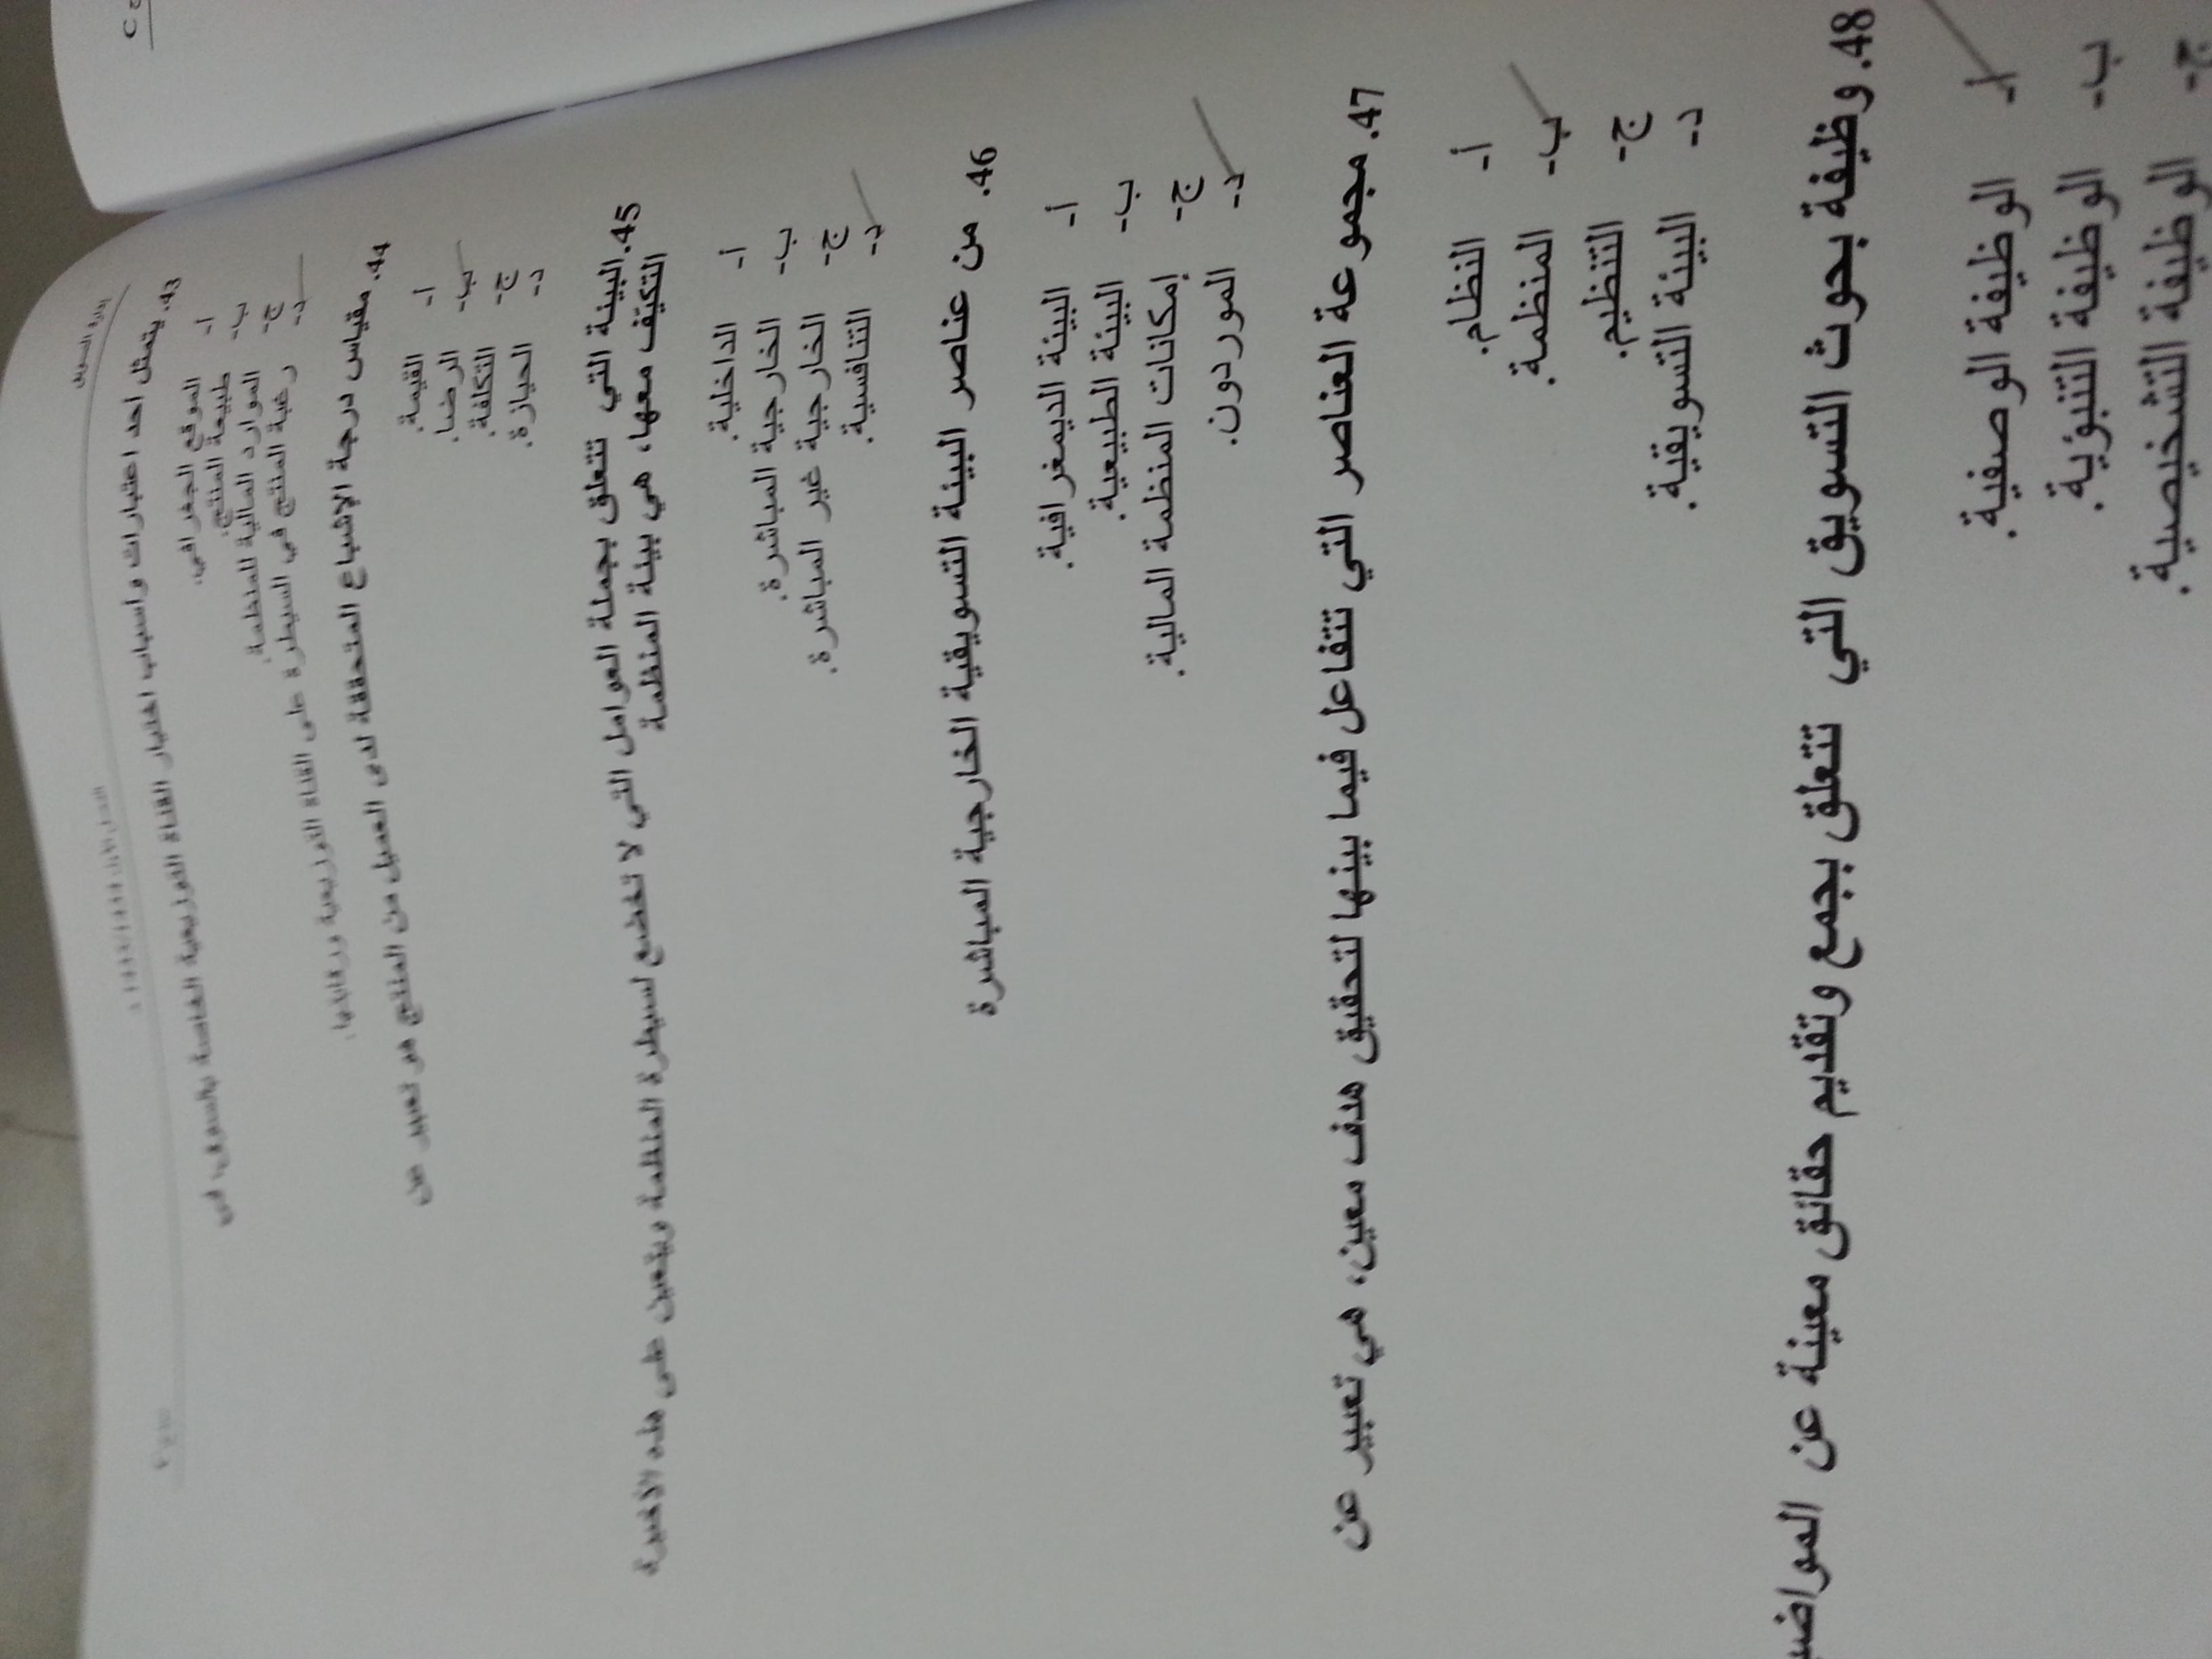 إدارة التسويق
43. يتمثل احد اعتبارات واسباب اختيار القناة التوزيعية الخاصة بالسوق، في
أ- الموقع الجغرافي.
ب- طبيعة المنتج.
ج- الموارد المالية للمنظمة.
د- رغبة المنتج في السيطرة على القناة التوزيعية ورقابتها.
44. مقياس درجة الإشباع المتحققة لدى العميل من المنتج هو تعبير عن
أ- القيمة.
ب- الرضا.
ج- التكلفة.
د- الحيازة.
45. البيئة التي تتعلق بجملة العوامل التي لا تخضع لسيطرة المنظمة ويتعين على هذه الأخيرة
التكيف معها، هي بيئة المنظمة
أ- الداخلية.
ب- الخارجية المباشرة.
ج- الخارجية غير المباشرة.
د- التنافسية.
46. من عناصر البيئة التسويقية الخارجية المباشرة
أ- البيئة الديمغرافية.
ب- البيئة الطبيعية.
ج- إمكانات المنظمة المالية.
د- الموردون.
47. مجموعة العناصر التي تتفاعل فيما بينها لتحقيق هدف معين، هي تعبير عن
أ- النظام.
ب- المنظمة.
ج- التنظيم.
د- البيئة التسويقية.
48. وظيفة بحوث التسويق التي تتعلق بجمع وتقديم حقائق معينة عن
أ- الوظيفة الوصفية.
ب- الوظيفة التنبؤية.
ج- الوظيفة التشخيصية.